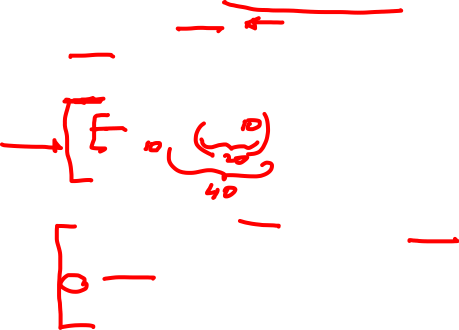 10
10
20
40